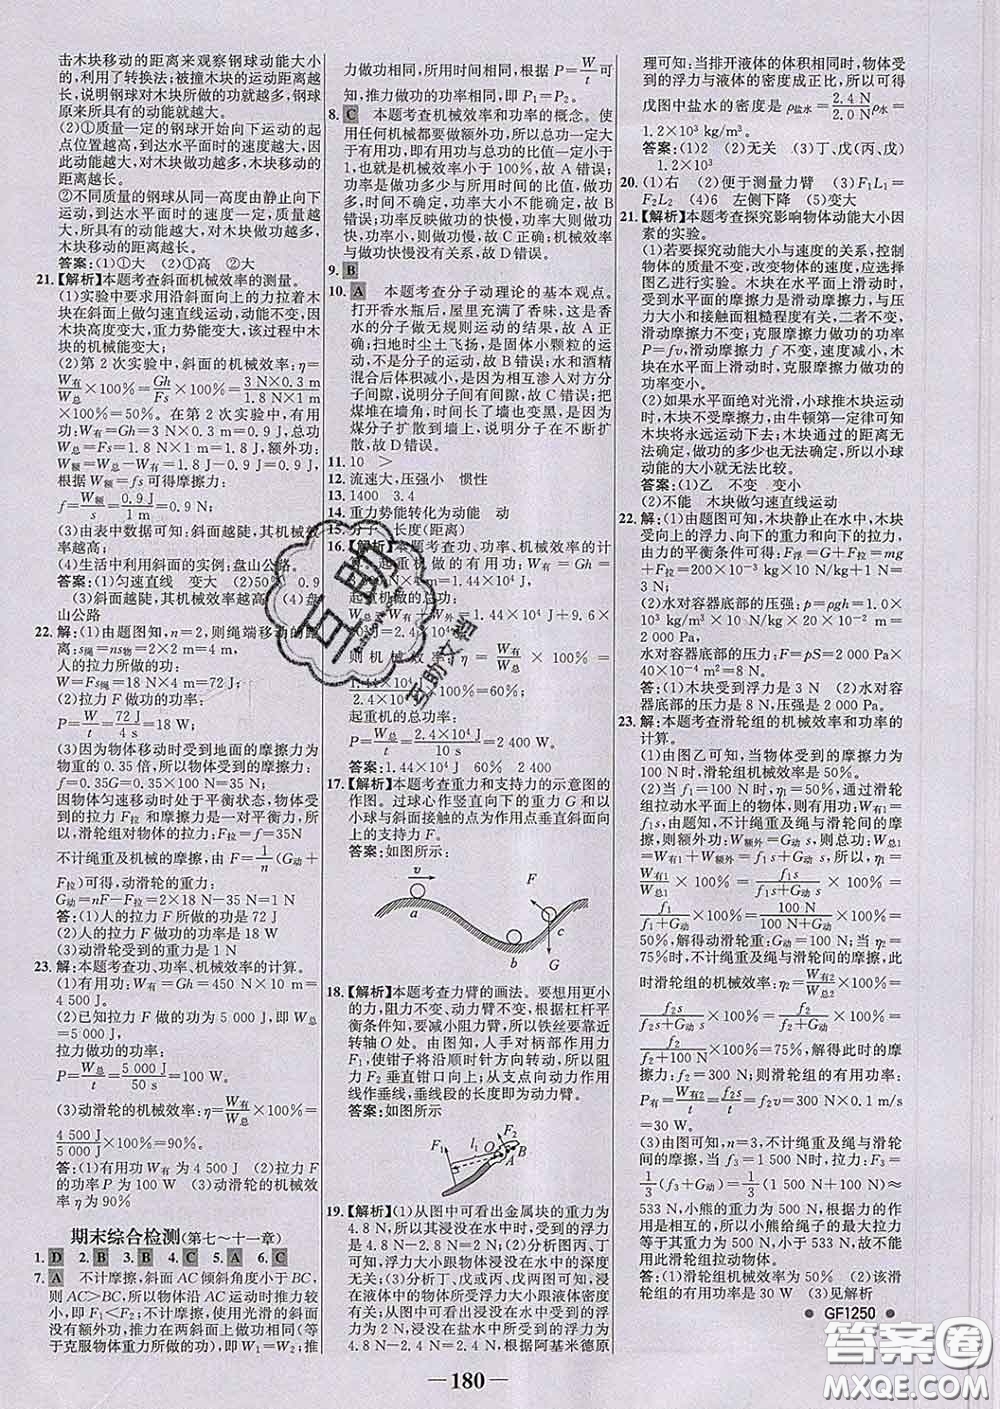 击木块移动的距离来观察钢球动能大小
的,利用了转换法;被撞木块的运动距离越
长,说明钢球对木块所做的功就越多,钢球
原来所具有的动能就越大。
(2)①质量一定的钢球开始向下运动的高
位置越高,到达水平面时的速度越大,
动能越大,对木块做功越多,木块移动
的距离越长。
②不同质量的钢球从同一高度由静止向下
运动,到达水平面时的速度相同,质量越
大,所具有的动能越大,对木块做功越多,
木块移动的距离越长。
答案:(1)①大 (2)①高 ②大
21.【解析】本题考查斜面机械效率的测量。
(1)实验中要求用沿斜面向上的力拉着木
块在斜面上做匀速直线运动,动能不变,因
木块高度变大,重力势能变大,该过程中木
块的机械能变大;
(2)第 2 次实验中,斜面的机械效率:η=
W有/W总×100%=Gh/Fs×100%=3 N×0.3 m/1.8 N×1 m
×100%=50%。在第 2 次实验中,有用
功:W有=Gh=3 N×0.3 m=0.9 J,总功:
W总=Fs=1.8 N×1 m=1.8 J,额外功:
W额=W总-W有=1.8 J-0.9 J=0.9 J,
根据 W额=fs 可得摩擦力:
f=W额/s=0.9 J/1 m=0.9 N;
(3)由表中数据可知:斜面越陡,其机械效
率越高;
(4)生活中利用斜面的实例:盘山公路。
答案:(1)匀速直线 变大 (2)50% 0.9
(3)斜面越陡,其机械效率越高 (4)盘
山公路
22.解:(1)由题图知,n=2,则绳端移动的距
离:s绳=ns物=2×2 m=4 m,
人的拉力所做的功:
W=Fs绳=18 N×4 m=72 J;
(2)拉力 F 做功的功率:
P=W/t=72 J/4 s=18 W;
(3)因为物体移动时受到地面的摩擦力为
物重的 0.35 倍,所以物体受到的摩擦力:
f=0.35G=0.35×100 N=35 N,
因物体匀速移动时处于平衡状态,物体受
到的拉力 F拉和摩擦力是一对平衡力,所
以,滑轮组对物体的拉力:F拉=f=35N
不计绳重及机械的摩擦,由 F=1/n(G动+
F拉)可得,动滑轮的重力:
G动=nF-F拉=2×18 N-35 N=1 N
答:(1)人的拉力 F 所做的功是 72 J
(2)人的拉力 F 做功的功率是 18 W
(3)动滑轮受到的重力是 1 N
23.解:本题考查功、功率、机械效率的计算。
(1)有用功:W有=Gh=450 N×10 m=
4 500 J。
(2)已知拉力做的功为 5 000 J,即 W总
=5 000 J,
拉力做功的功率:
P=W总/t=5 000 J/50 s=100 W。
(3)动滑轮的机械效率:η=W有/W总×100%=
4 500 J/5 000 J×100%=90%。
答:(1)有用功 W有为 4 500 J (2)拉力 F
的功率 P 为 100 W (3)动滑轮的机械效
率 η 为 90%
期末综合检测(第七~十一章)
1. D 2. B 3. B 4. C 5. A 6. C
7. A 不计摩擦,斜面 AC 倾斜角度小于 BC,
则 AC>BC,所以物体沿 AC 运动时推力较
小,即 F1<F2;不计摩擦,使用光滑的斜面
没有额外功,推力在两斜面上做功(等
于克服物体重力所做的功),即 W1=W2;推
力做功相同,所用时间相同,根据 P=W/t
可知,推力做功的功率相同,即 P1=P2。
8. C 本题考查机械效率和功率的概念。使
用任何机械都要做额外功,所以总功一定大
于有用功,即有用功与总功的比值一定小于
1,也就是机械效率小于 100%,故 A 错误;
功率是做功多少与所用时间的比值,做功
多,功率大小不能确定,故 B 错误;
功率反映做功的快慢,功率大的机械做功一
定快,故 C 正确;机械效率与
做功快慢没有关系,故 D 错误。
9. B
10. A 本题考查分子动理论的基本观点。
打开香水瓶后,屋里充满了香味,这是香
水的分子做无规则运动的结果,故 A 正
确;扫地时尘土飞扬,是固体小颗粒的运动,
不是分子的运动,故 B 错误;水和酒精
混合后体积减小,是因为相互渗入对方分
子间隙,说明分子间有间隙,故 C 错误;把
煤堆在墙角,时间长了墙也变黑,是因为
煤分子扩散到墙上,说明分子在不断扩
散,故 D 错误。
11. 10 >
12. 流速大,压强小 惯性
13. 1400 3.4
14. 重力势能转化为动能 动
15. 分子 长度(距离)
16.【解析】本题考查功、功率、机械效率的计
算。起重机做的有用功:W有=Gh=
1.44×10⁴ J
起重机做的总功:
1.44×10⁴ J+9.6×
10³ J=2.4×10⁴ J
则机械效率:η=W有/W总×100%=
1.44×10⁴ J/2.4×10⁴ J×100%=60%;
起重机的总功率:
P=W总/t=2.4×10⁴ J/10 s=2 400 W。
答案:1.44×10⁴ 60% 2 400
17.【解析】本题考查重力和支持力的示意图的
作图。过球心作竖直向下的重力 G 和以
小球与斜面接触的点为作用点垂直斜面向
上的支持力 F。
答案:如图所示:
v a b F c G
18.【解析】本题考查力臂的画法。要想用更小
的力,阻力不变、动力臂不变,根据杠杆平
衡条件知,要减小阻力臂,所以铁丝要靠近
转轴 O 处。由图知,人手对柄部作用力
F1,使钳子将沿顺时针方向转动,所以阻
力 F2 垂直钳口向上;从支点向动力作用
线作垂线,垂线段的长度即为动力臂。
答案:如图所示
F1 l1 O F2 A B
19.【解析】(1)从图中可看出金属块的重力为
4.8 N,所以其浸没在水中时,受到的浮力
是 4.8 N-2.8 N=2 N;(2)分析丙、丁两图
可以看出,浮力大小跟物体浸没在水中的
深度无关;(3)分析丁、戊或丙、戊两图可
以看出,浮力大小跟物体浸没在
液体中的物体所受的浮力分别为 2.4 N
和 2 N,物体浸没在水中时受到的浮力
为 2 N,浸没在盐水中时受到的浮力为
4.8 N-2.4 N=2.4 N,根据阿基米德原
理可知:当排开液体的体积相同时,物体受
到的浮力与液体的密度成正比,所以可得
戊图中盐水的密度是 ρ盐水=2.4 N/2.0 N ρ水=
1.2×10³ kg/m³。
答案:(1)2 (2)无关 (3)丁、戊(丙、戊)
1.2×10³
20. (1)右 (2)便于测量力臂 (3)F1L1=
F2L2 (4)6 左侧下降 (5)变大
21.【解析】本题考查探究影响物体动能大小因
素的实验。
(1)若要探究动能大小与速度的关系,控制
物体的质量不变,改变物体的速度,应选择
图乙进行实验。木块在水平面上滑动时,
受到水平面的摩擦力是滑动摩擦力,与压
力大小和接触面粗糙程度有关,二者不变,
滑动摩擦力不变;克服摩擦力做功的功率
P=fv,滑动摩擦力 f 不变,速度减小,木
块在水平面上滑动时,克服摩擦力做功的
功率变小。
(2)如果水平面绝对光滑,小球推动木块运动
时,木块不受摩擦力,由牛顿第一定律可知
木块将永远运动下去;木块通过的距离无
法确定,木块将做匀速直线运动,所以小球
动能的大小就无法比较。
答案:(1)乙 不变 变小
(2)不能 木块做匀速直线运动
22.解:(1)由题图可知,木块静止在水中,木块
受向上的浮力、向下的重力和向下的拉力,
由力的平衡条件可得:F浮=G+F拉=mg
+F拉=200×10⁻³ kg×10 N/kg+1 N=
3 N;
(2)水对容器底部的压强:p=ρgh=1.0×
10³ kg/m³×10 N/kg×20×10⁻² m=
2 000 Pa,
水对容器底部的压力:F=pS=2 000 Pa×
40×10⁻⁴ m²=8 N。
答:(1)木块受到浮力是 3 N (2)水对容
器底部的压力是 8 N,压强是 2 000 Pa。
23.解:本题考查滑轮组的机械效率和功率的
计算。
(1)由图乙可知,当物体受到的摩擦力为
100 N时,滑轮组机械效率是 50%。
(2)当 f1=100 N 时,η1=50%,通过滑轮
组拉动水平面上的物体,则有用功:W有1=
f1s,不计绳重及绳与滑轮间的摩
擦,则额外功:W额外=G动s,总功:W总1
=W有1+W额外=f1s+G动s,所以:η1=
W有1/W总1×100%=f1s/f1s+G动s×100%=
f1/f1+G动×100%=100 N/100 N+G动×100%=
50%,解得动滑轮重:G动=100 N;当 η2=
75%时,不计绳重及绳与滑轮间的摩擦,此
时滑轮组的机械效率:η2=W有2/W总2×100%=
f2s/f2s+G动s×100%=f2/f2+G动×100%=
f2/f2+100 N×100%=75%,解得此时的摩擦
力:f2=300 N;则滑轮组的有用功率:
P有=W有2/t=f2s/t=f2v=300 N×0.1 m/s
=30 W。
(3)由图可知,n=3,不计绳重及绳与滑轮
间的摩擦,当 f3=1 500 N时,拉力:F3=
1/3(f3+G动)=1/3(1 500 N+100 N)≈
533 N,小熊的重力为 500 N,因为拉力与
体重的关系,所以小熊给绳子的最大拉力
等于小熊的重力 500 N,小于 533 N,故不
能用此滑轮组拉动物体。
答:(1)滑轮组机械效率为 50% (2)该滑
轮组的有用功率是 30 W (3)见解析
● GF1250 ●
答案圈
MXQE.COM
互助
互助文档
— 180 —